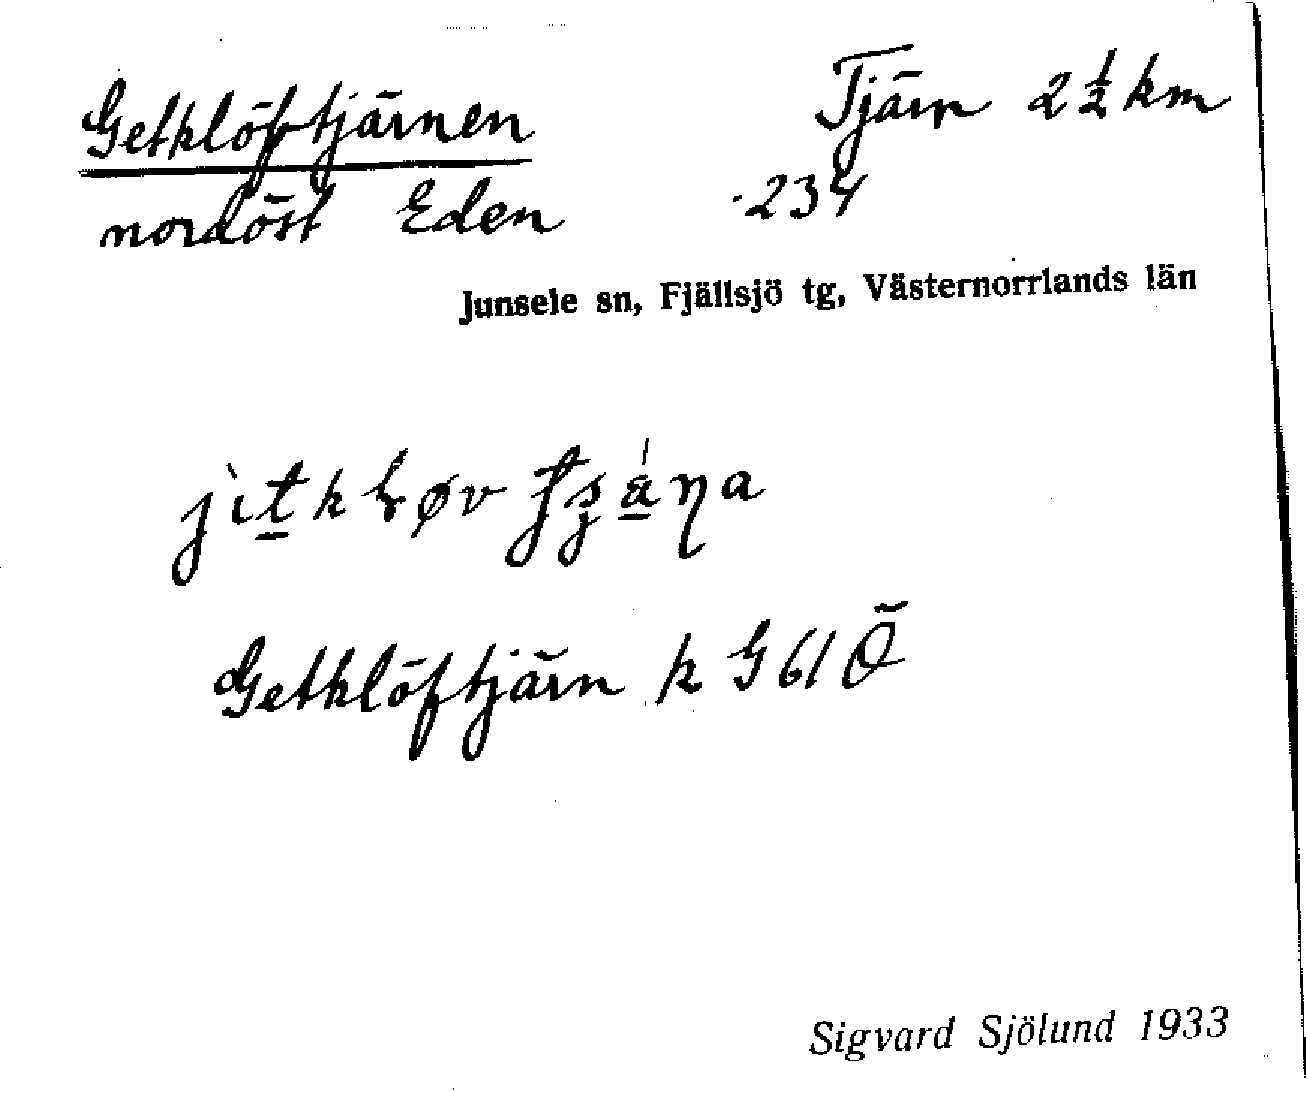 Getklöftjärnen Tjärn 2 1/2 km
nordöst Eden 234
Junsele sn, Fjällsjö tg, Västernorrlands län
Getklöftjärn k G61Ö
Sigvard Sjölund 1933